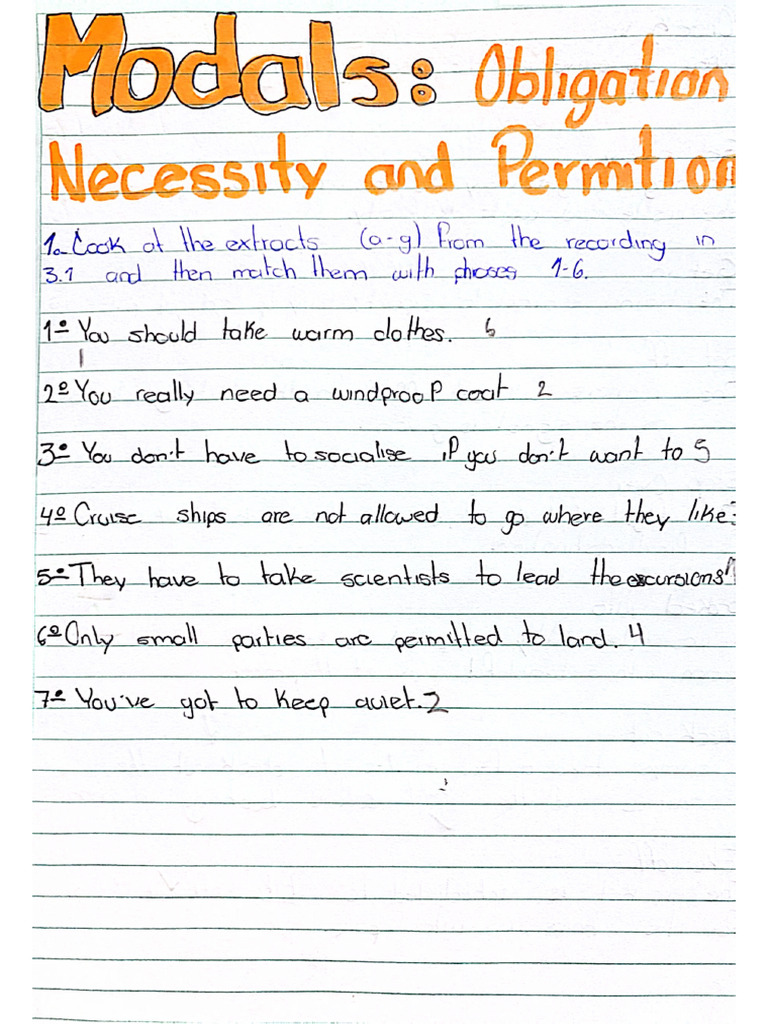 Modals: Obligation
Necessity and Permition
1. Look at the extracts (a-g) from the recording in
3.1 and then match them with phrases 1-6.
1º You should take warm clothes. 6
1
2º You really need a windproof coat 2
3º You don't have to socialise if you don't want to 5
4º Cruise ships are not allowed to go where they like.
5º They have to take scientists to lead the excursions
6º Only small parties are permitted to land. 4
7º You've got to keep quiet. 2